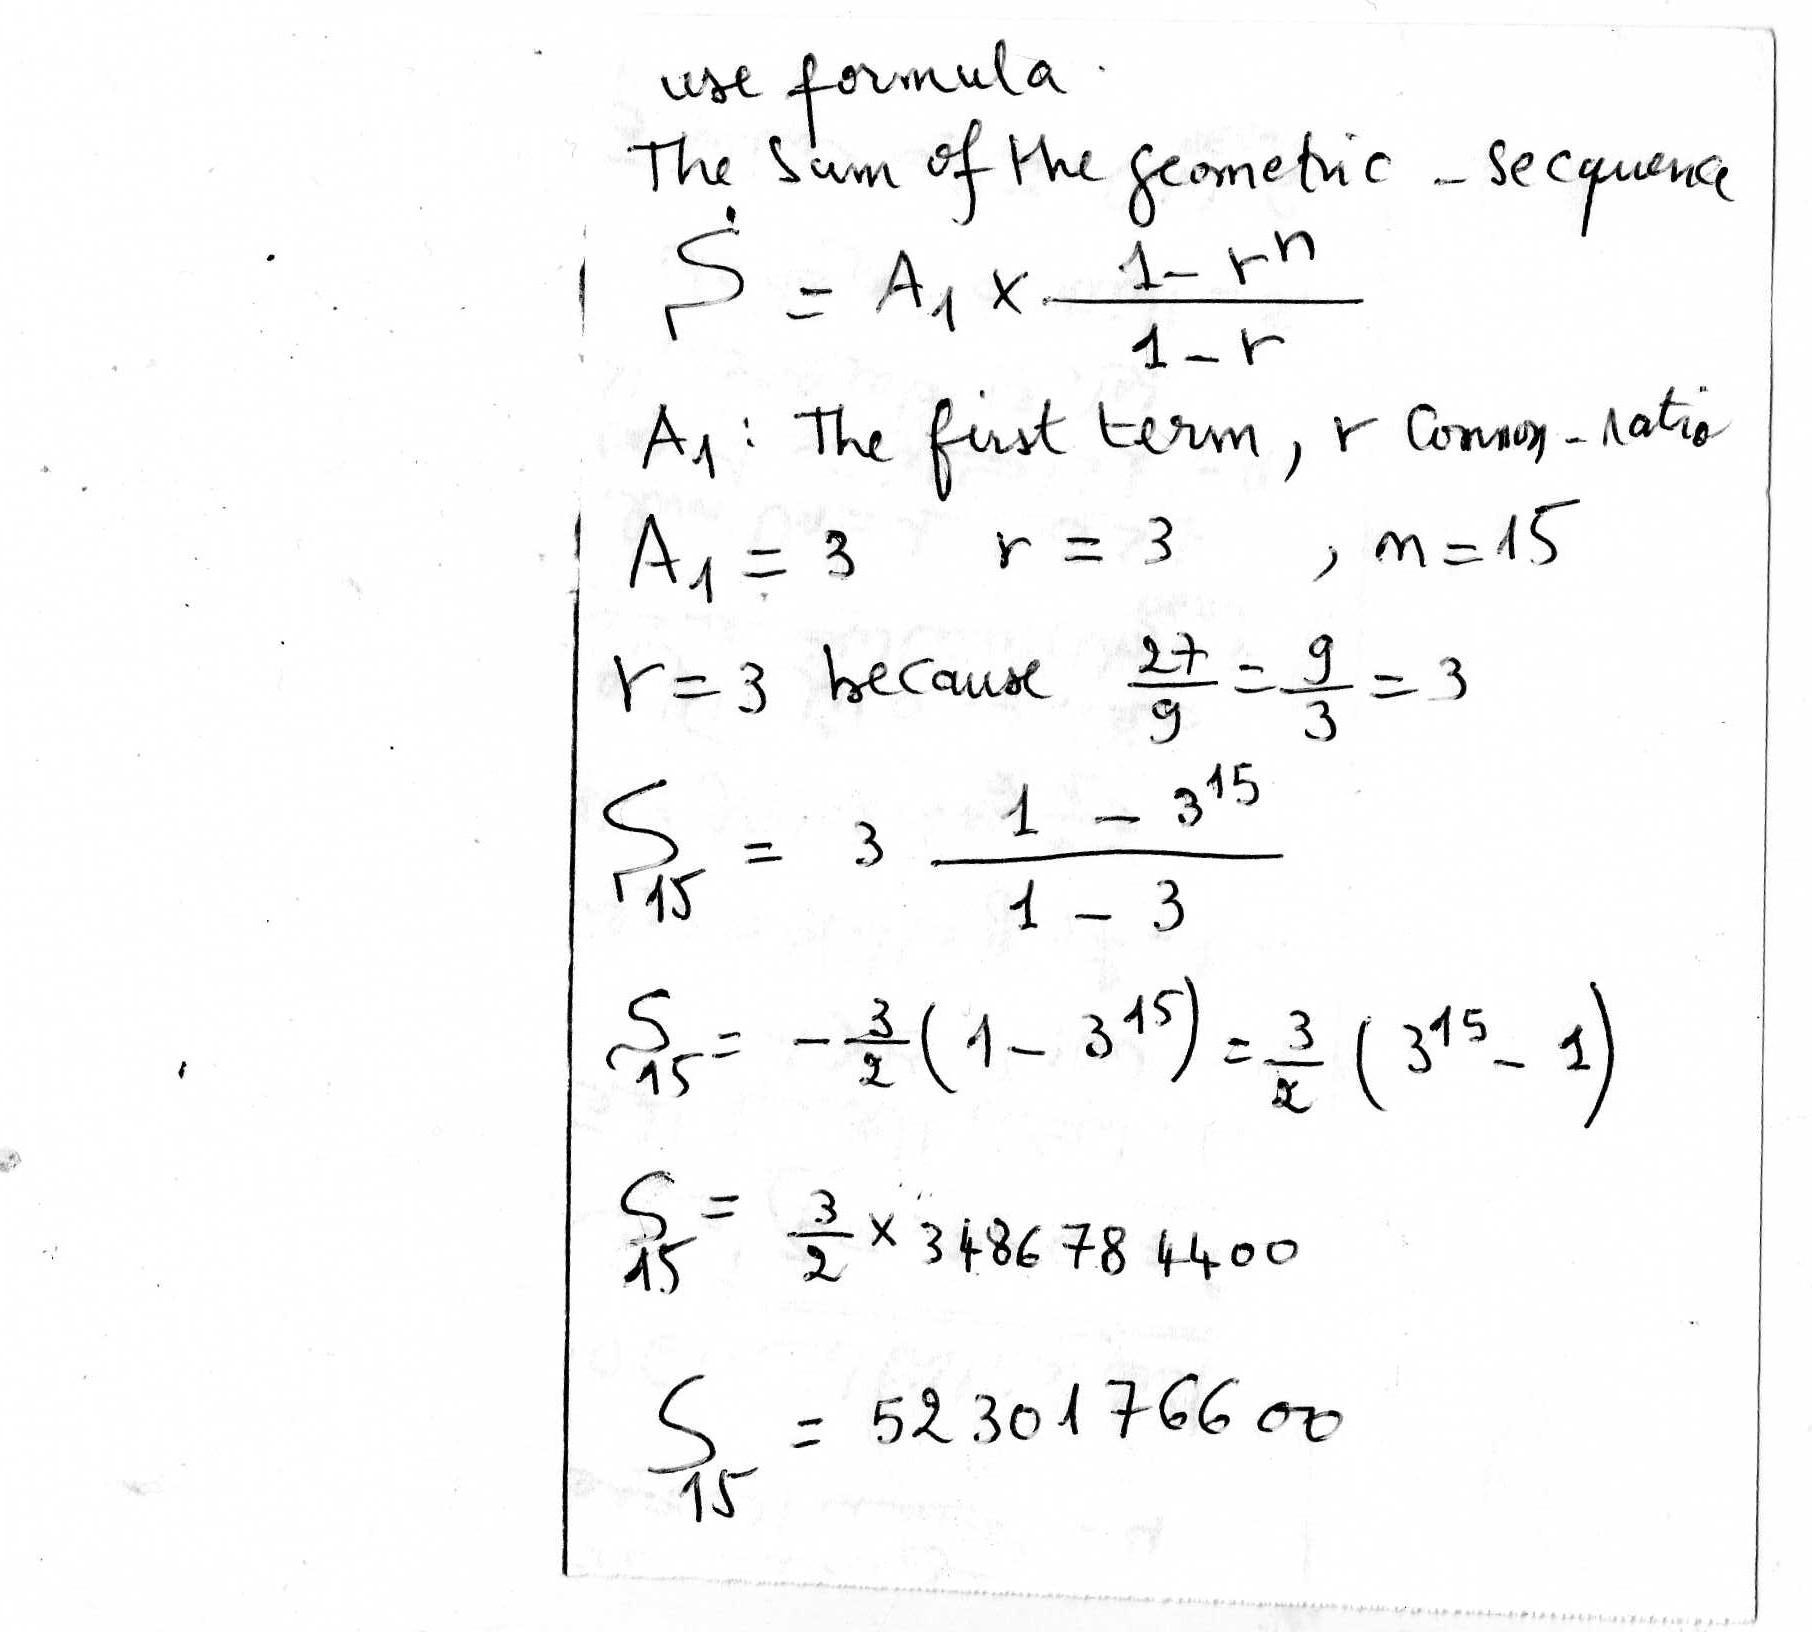 use formula.
The Sum of the geometric - secquence
S = A₁ × (1 - rⁿ) / (1 - r)
A₁ : The first term, r Common - ratio
A₁ = 3 r = 3 , n = 15
r = 3 because 27/9 = 9/3 = 3
S₁₅ = 3 (1 - 3¹⁵) / (1 - 3)
S₁₅ = - 3/2 (1 - 3¹⁵) = 3/2 (3¹⁵ - 1)
S₁₅ = 3/2 × 3486784400
S₁₅ = 5230176600